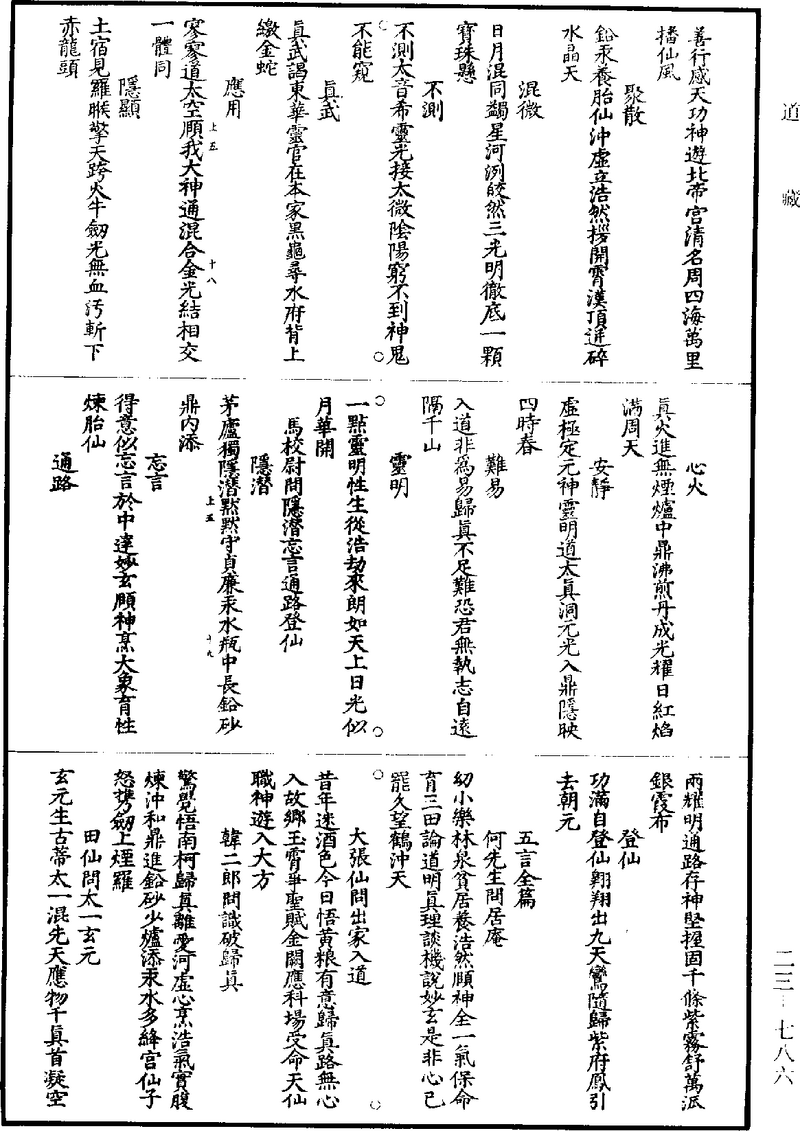 道藏
善行感天功神遊北帝宮清名周四海萬里
播仙風
聚散
鉛汞養胎仙沖虛立浩然拶開霄漢頂迸碎
水晶天
混微
日月混同躅星河洌皎然三光明徹底一顆
寶珠懸
不測
不測太音希靈光接太微陰陽窮不到神鬼
不能窺
真武
真武謁東華靈官在本家黑龜尋水府背上
繳金蛇
應用
寥寥道太空顧我大神通混合金光結相交
上五 十八
一體同
隱顯
土宿見羅睺擎天跨火牛劒光無血污斬下
赤龍頭
心火
真火進無煙爐中鼎沸煎丹成光耀日紅焰
滿周天
安靜
虛極定元神靈明道太真洞元光入鼎隱映
四時春
難易
入道非為易歸真不足難恐君無執志自遠
隔千山
靈明
一點靈明性生從浩劫來朗如天上日光似
月華開
馬校尉問隱潛忘言通路登仙
隱潛
茅廬獨隱潛默默守貞廉汞水瓶中長鉛砂
上五 十九
鼎內添
忘言
得意似忘言於中達妙玄頤神烹大象育性
煉胎仙
通路
兩耀明通路存神堅握固千條紫霧舒萬派
銀霞布
登仙
功滿自登仙翱翔出九天鸞隨歸紫府鳳引
去朝元
五言全篇
何先生問居庵
幼小樂林泉貧居養浩然頤神全一氣保命
育三田論道明真理談機說妙玄是非心已
罷久望鶴沖天
大張仙問出家入道
昔年迷酒色今日悟黃粮有意歸真路無心
入故鄉玉霄爭聖賦金闕應科場受命天仙
職神遊入大方
韓二郎問識破歸真
驚覺悟南柯歸真離愛河虛心烹浩氣實腹
煉沖和鼎進鉛砂少爐添汞水多絳宮仙子
怒攜劒上煙羅
田仙問太一玄元
玄元生古蒂太一混先天應物千真首凝空
二三–七八六